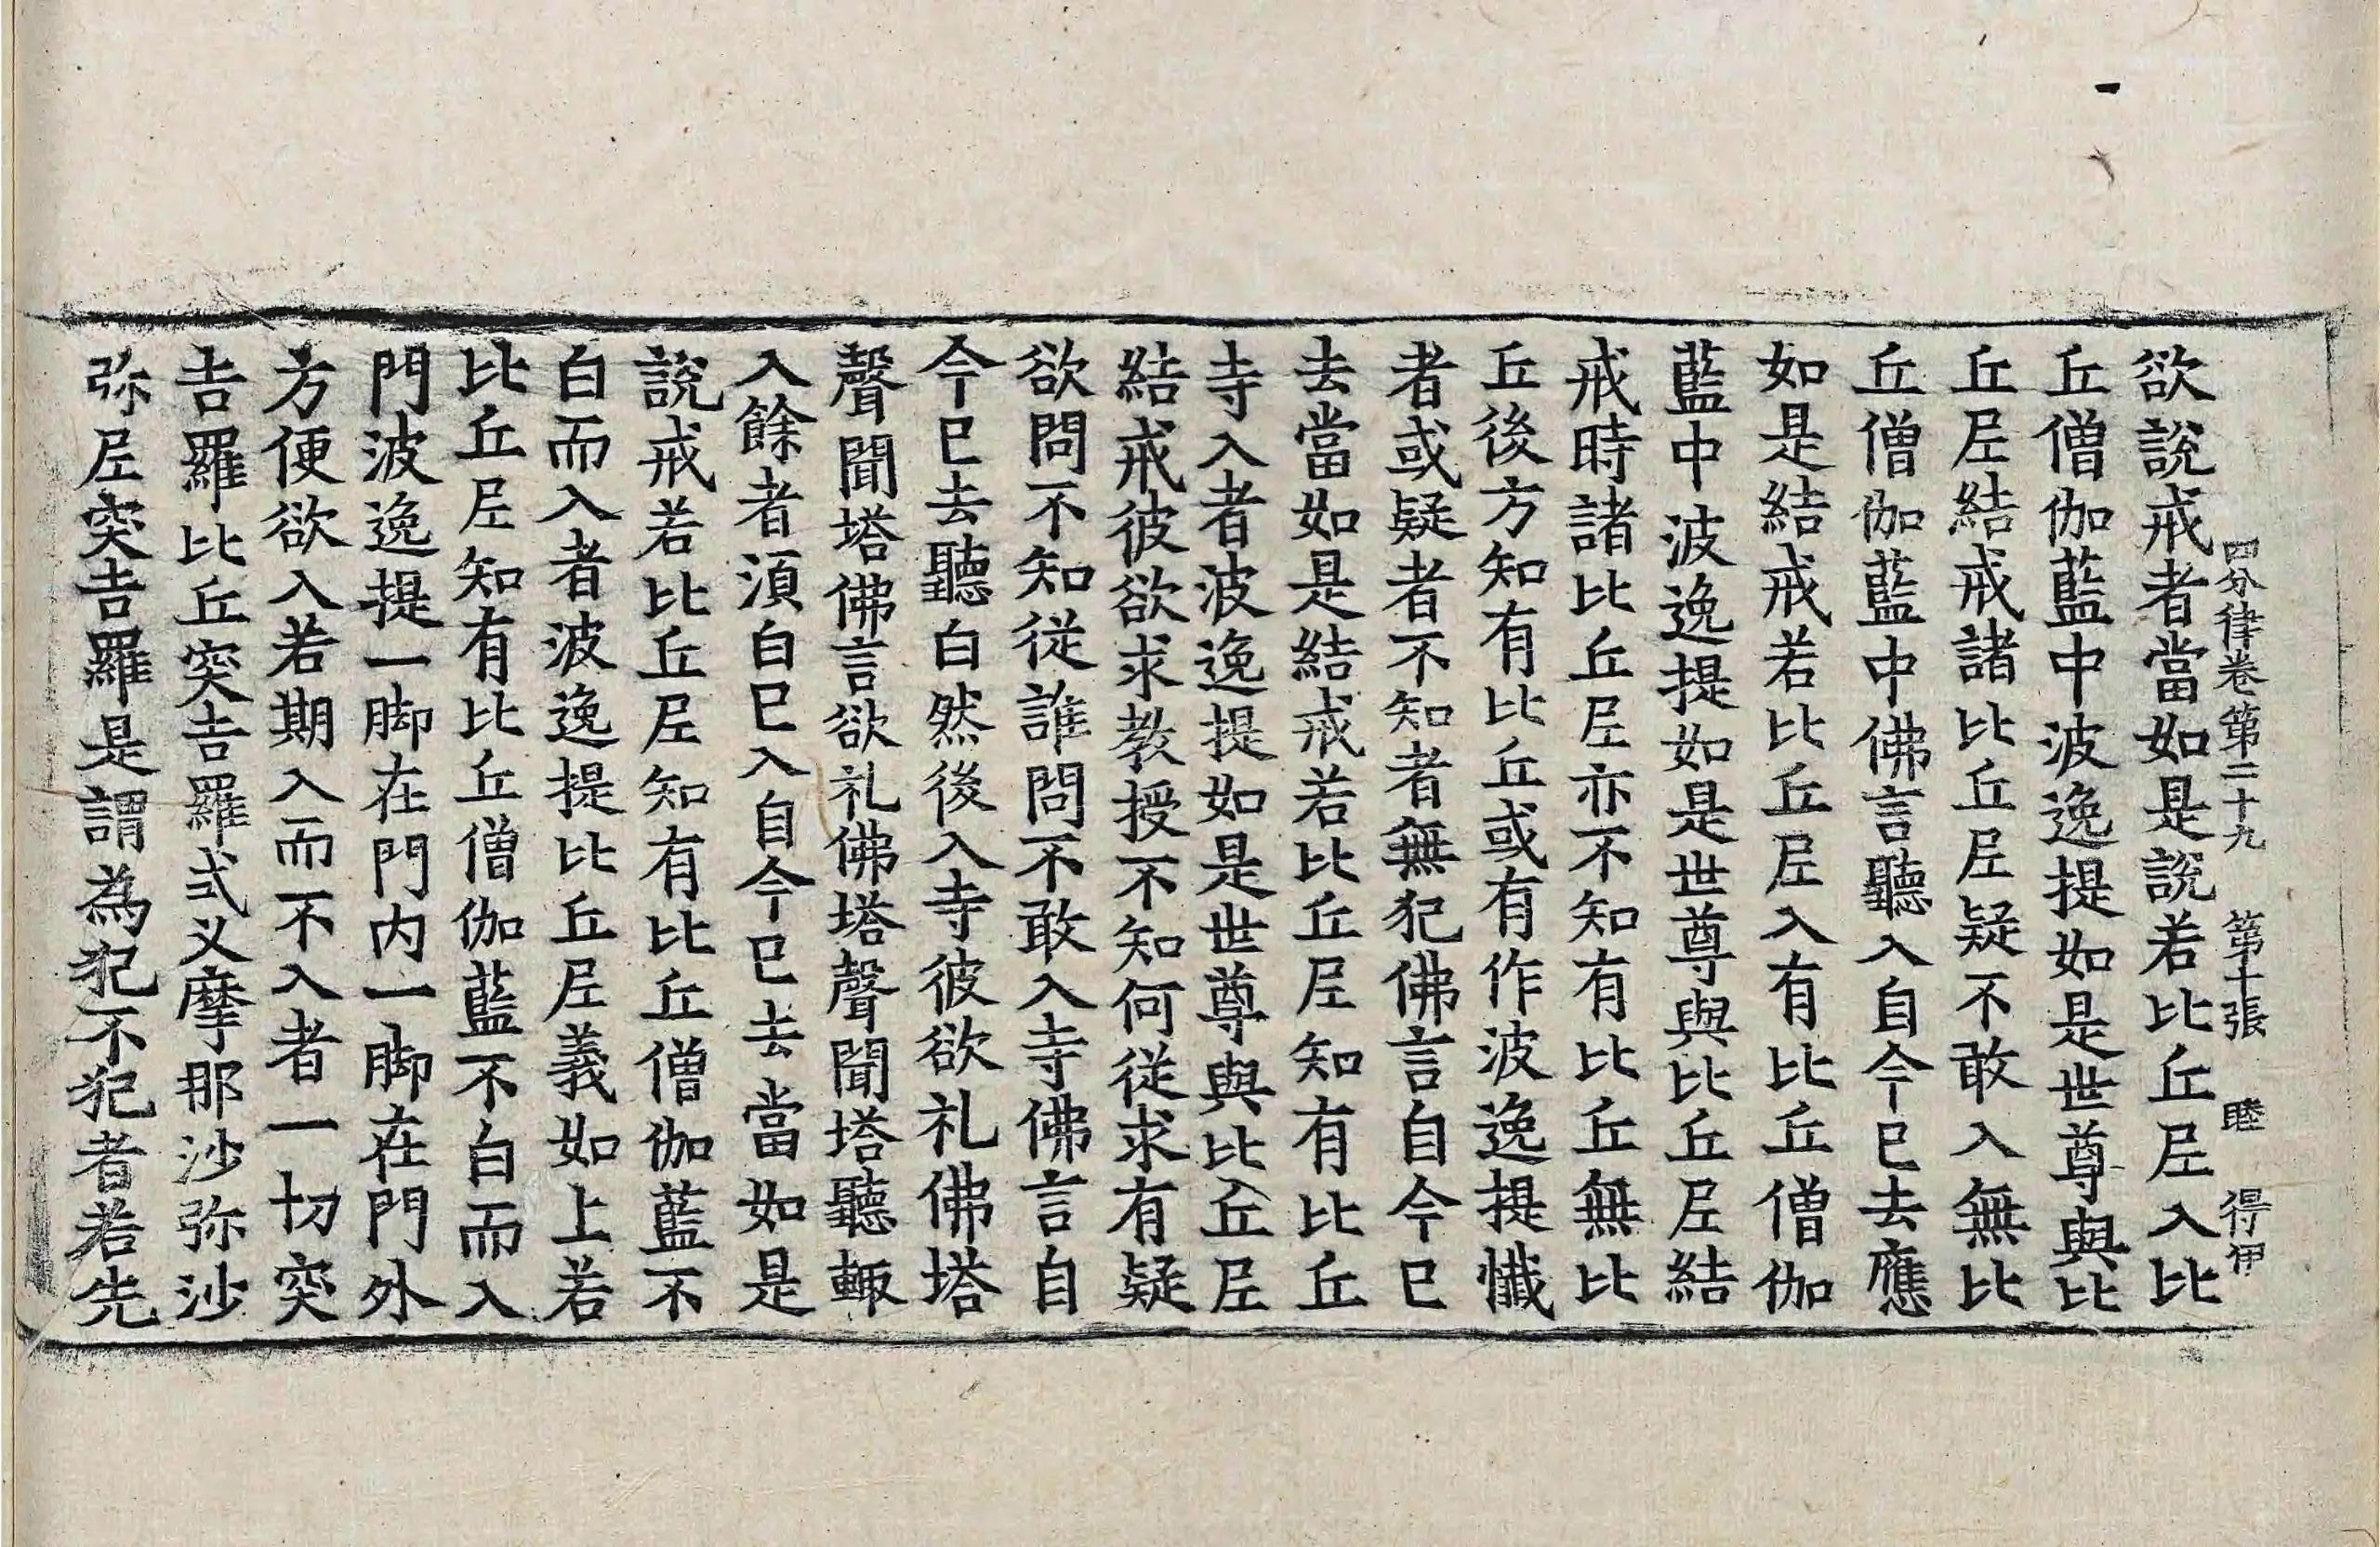 四分律卷第二十九 第十張 睦 得伊
欲說戒者當如是說若比丘尼入比
丘僧伽藍中波逸提如是世尊與比
丘尼結戒諸比丘尼疑不敢入無比
丘僧伽藍中佛言聽入自今已去應
如是結戒若比丘尼入有比丘僧伽
藍中波逸提如是世尊與比丘尼結
戒時諸比丘尼亦不知有比丘無比
丘後方知有比丘或有作波逸提懺
者或疑者不知者無犯佛言自今已
去當如是結戒若比丘尼知有比丘
寺入者波逸提如是世尊與比丘尼
結戒彼欲求教授不知何從求有疑
欲問不知從誰問不敢入寺佛言自
今已去聽白然後入寺彼欲礼佛塔
聲聞塔佛言欲礼佛塔聲聞塔聽輙
入餘者湏白已入自今已去當如是
說戒若比丘尼知有比丘僧伽藍不
白而入者波逸提比丘尼義如上若
比丘尼知有比丘僧伽藍不白而入
門波逸提一脚在門内一脚在門外
方便欲入若期入而不入者一切突
吉羅比丘突吉羅式叉摩那沙弥沙
弥尼突吉羅是謂為犯不犯者若先